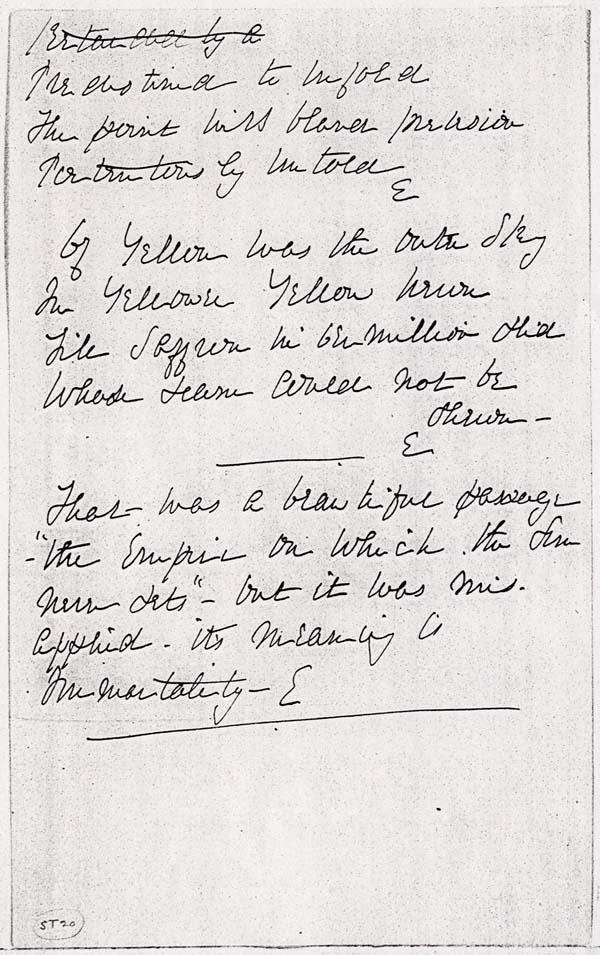 Predestined to unfold
The point with bland precision
Portentously untold
E
Of Yellow was the outer Sky
In Yellower Yellow hewn
Till Saffron in vermillion slid
Whose seam could not be
shewn –
E
That – was a beautiful passage
– "the Empire on which the Sun
never sets" – but it was mis.
applied – its meaning is
Immortality – E
ST20